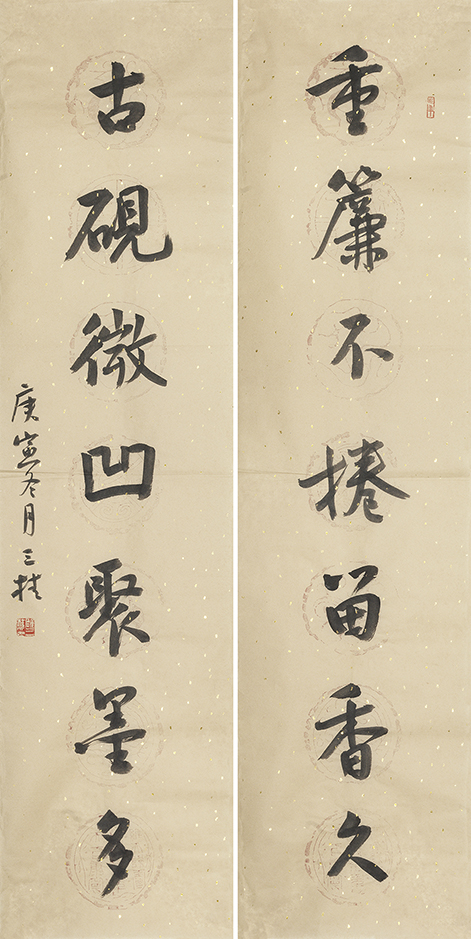 重簾不捲留香久
古硯微凹聚墨多
庚寅冬月三